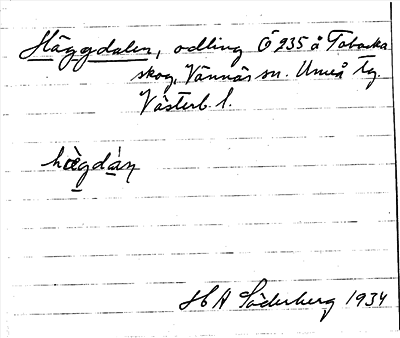 Häggdalen, odling Ö 235 å Tobacka
skog, Vännäs sn. Umeå tg.
Västerb. l.
hægdán
H A Söderberg 1934